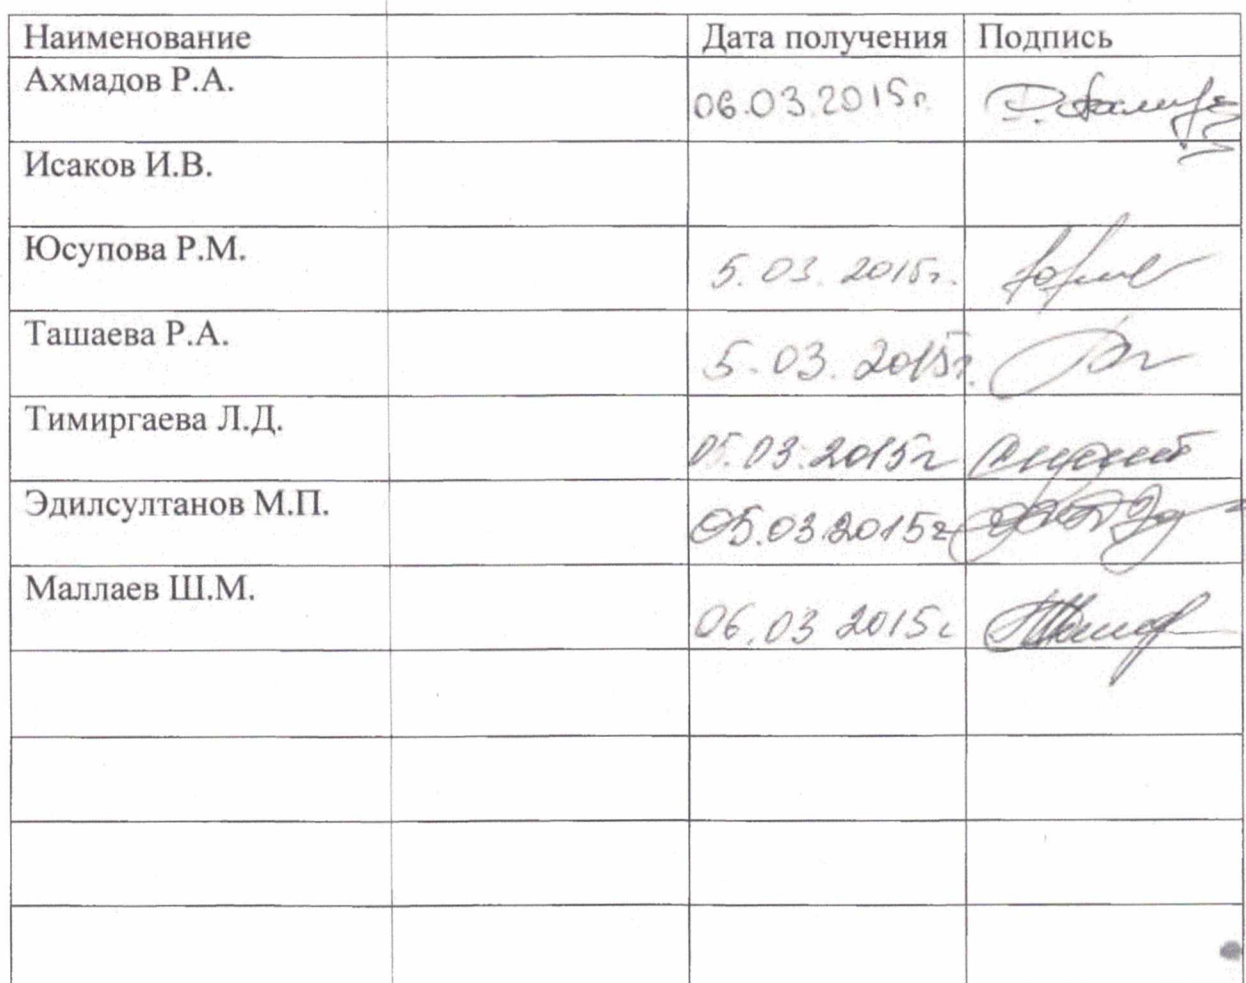 Наименование Дата получения Подпись
Ахмадов Р.А. 06.03.2015г.
Исаков И.В.
Юсупова Р.М. 5.03.2015г.
Ташаева Р.А. 5.03.2015г.
Тимиргаева Л.Д. 05.03.2015г
Эдилсултанов М.П. 05.03.2015г
Маллаев Ш.М. 06.03 2015г